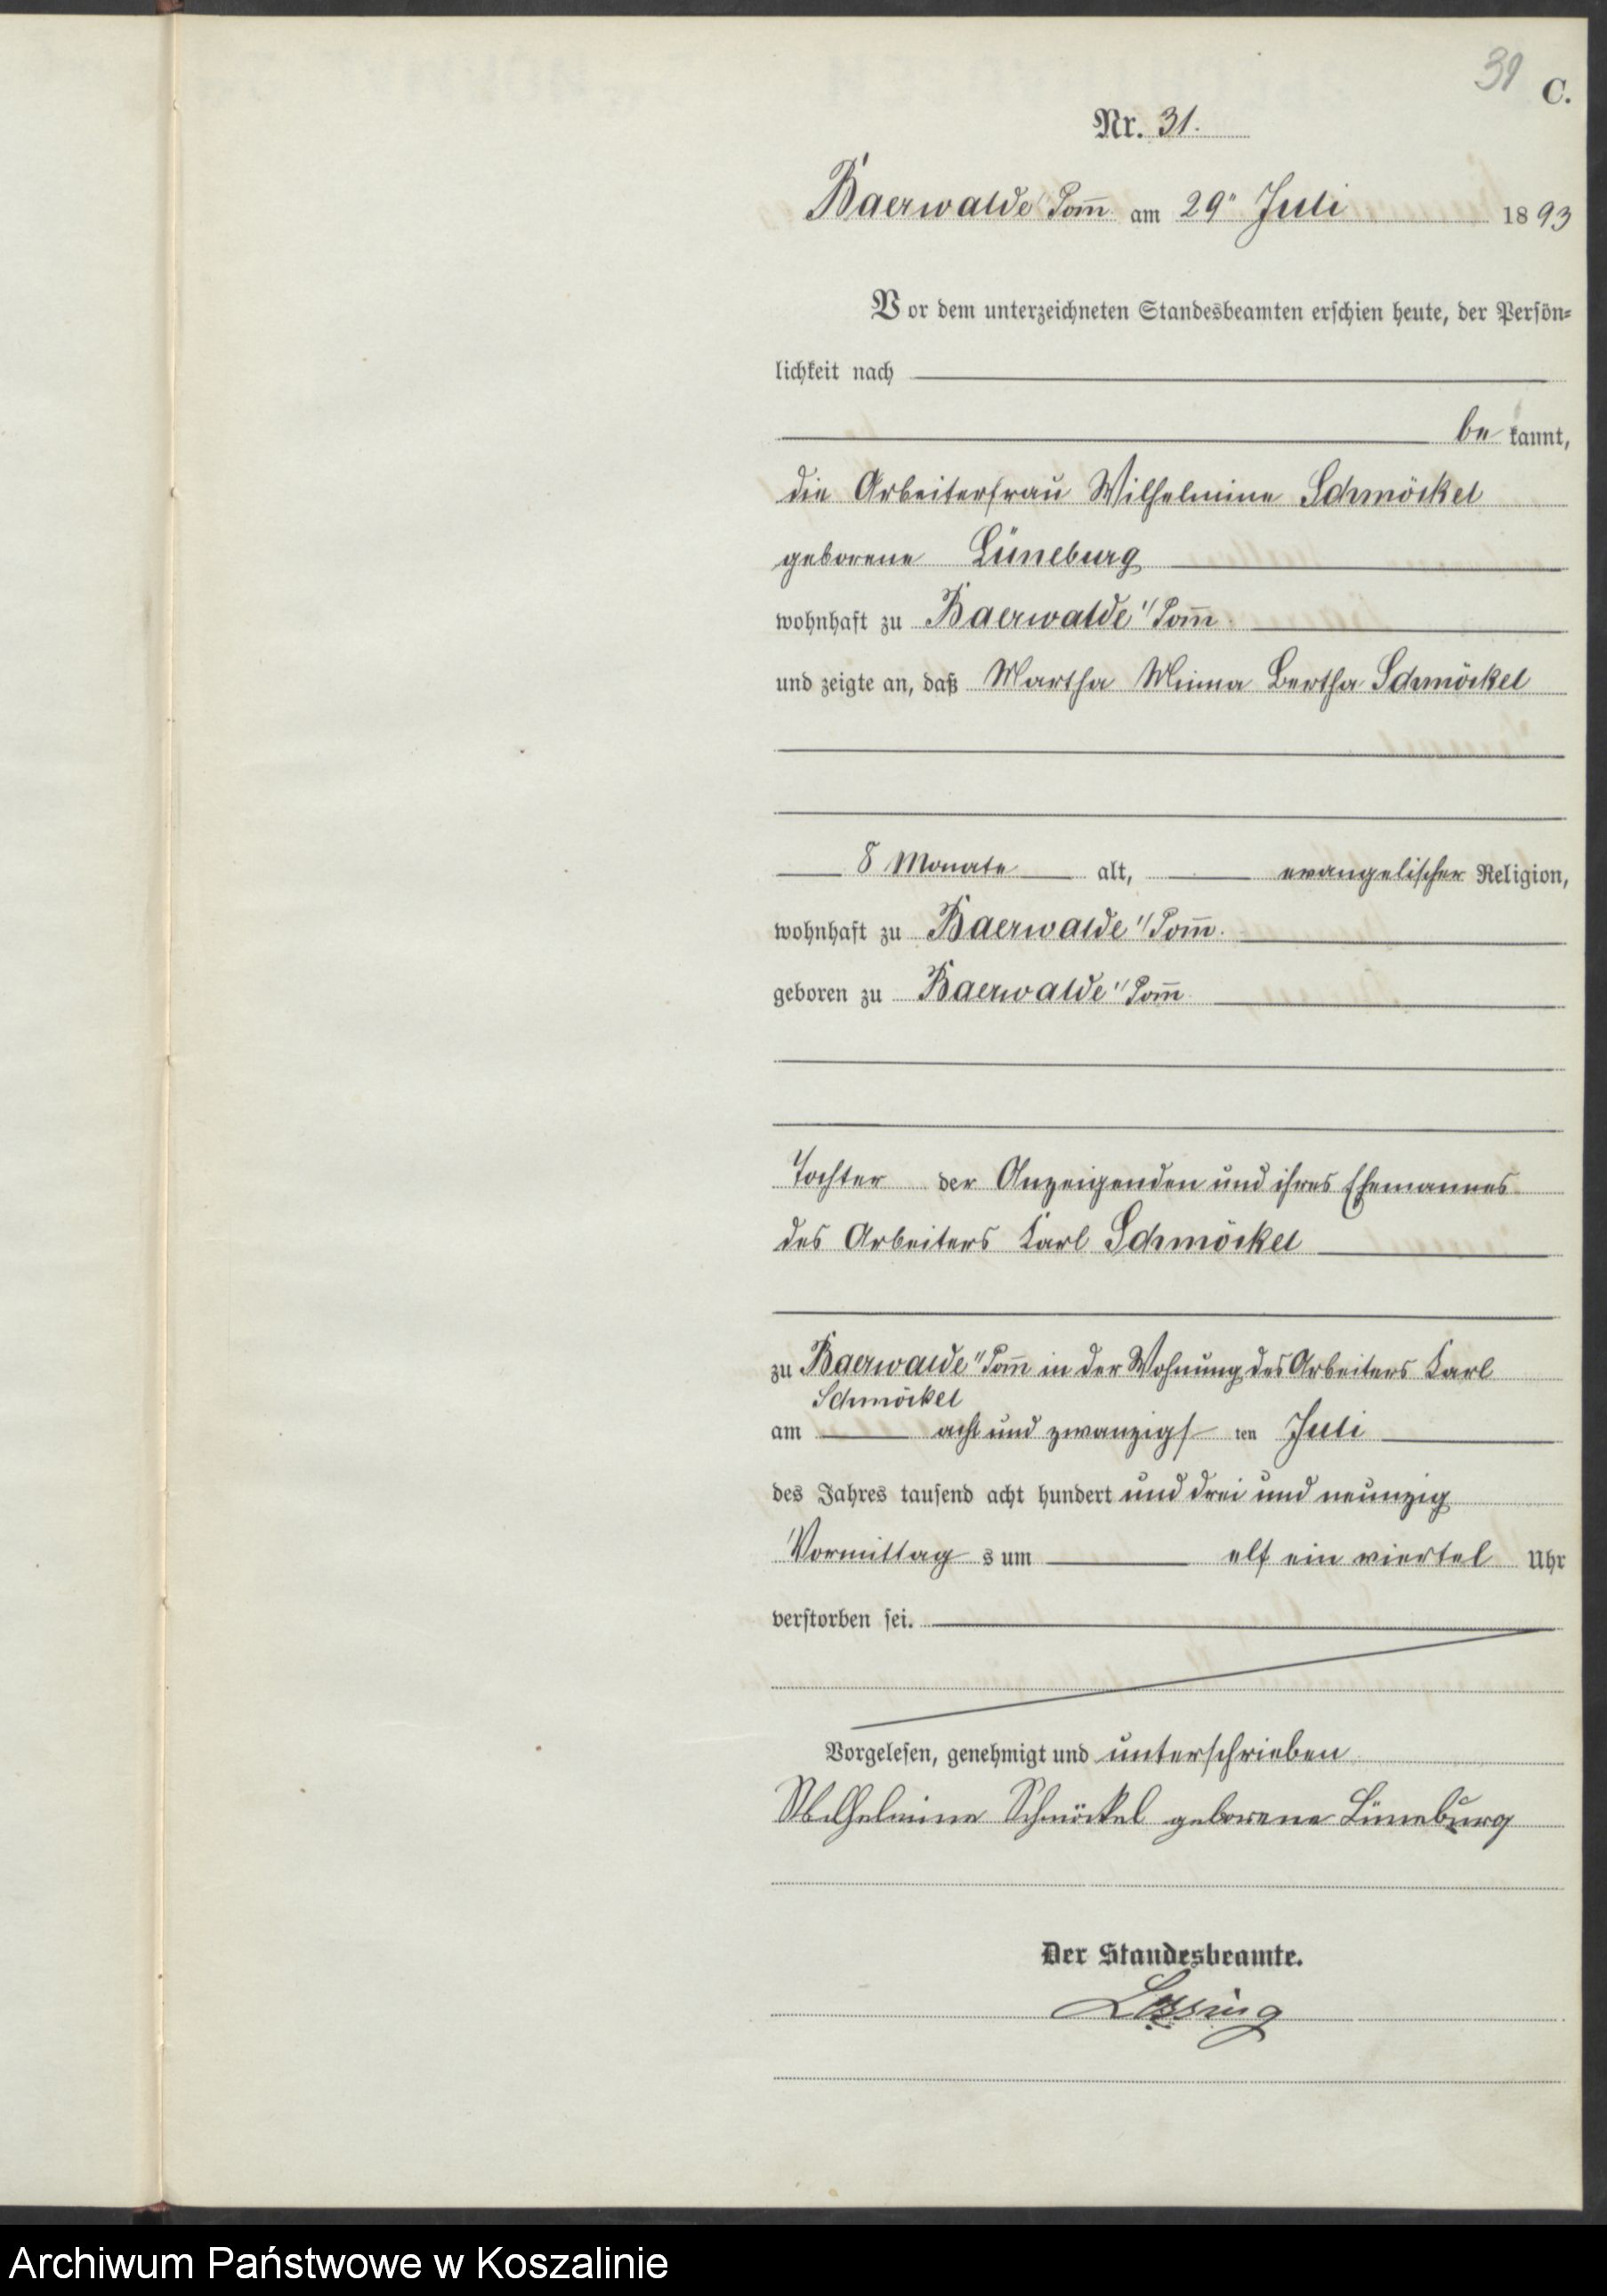 31
C.
Nr. 31.
Baerwalde Pom̄ am 29" Juli 1893
Vor dem unterzeichneten Standesbeamten erschien heute, der Persön-
lichkeit nach
be kannt,
die Arbeiterfrau Wilhelmine Schmöckel
geborene Lüneburg
wohnhaft zu Baerwalde "/Pom̄.
und zeigte an, daß Martha Minna Bertha Schmöckel
8 Monate alt, evangelischer Religion,
wohnhaft zu Baerwalde "/Pom̄.
geboren zu Baerwalde "/Pom̄.
Tochter der Anzeigenden und ihres Ehemannes
des Arbeiters Karl Schmöckel
zu Baerwalde "/Pom̄ in der Wohnung des Arbeiters Karl
Schmöckel
am acht und zwanzigsten Juli
des Jahres tausend acht hundert und drei und neunzig
Vormittags um elf ein viertel Uhr
verstorben sei.
Vorgelesen, genehmigt und unterschrieben
Wilhelmine Schmöckel geborene Lüneburg
Der Standesbeamte.
Archiwum Państwowe w Koszalinie